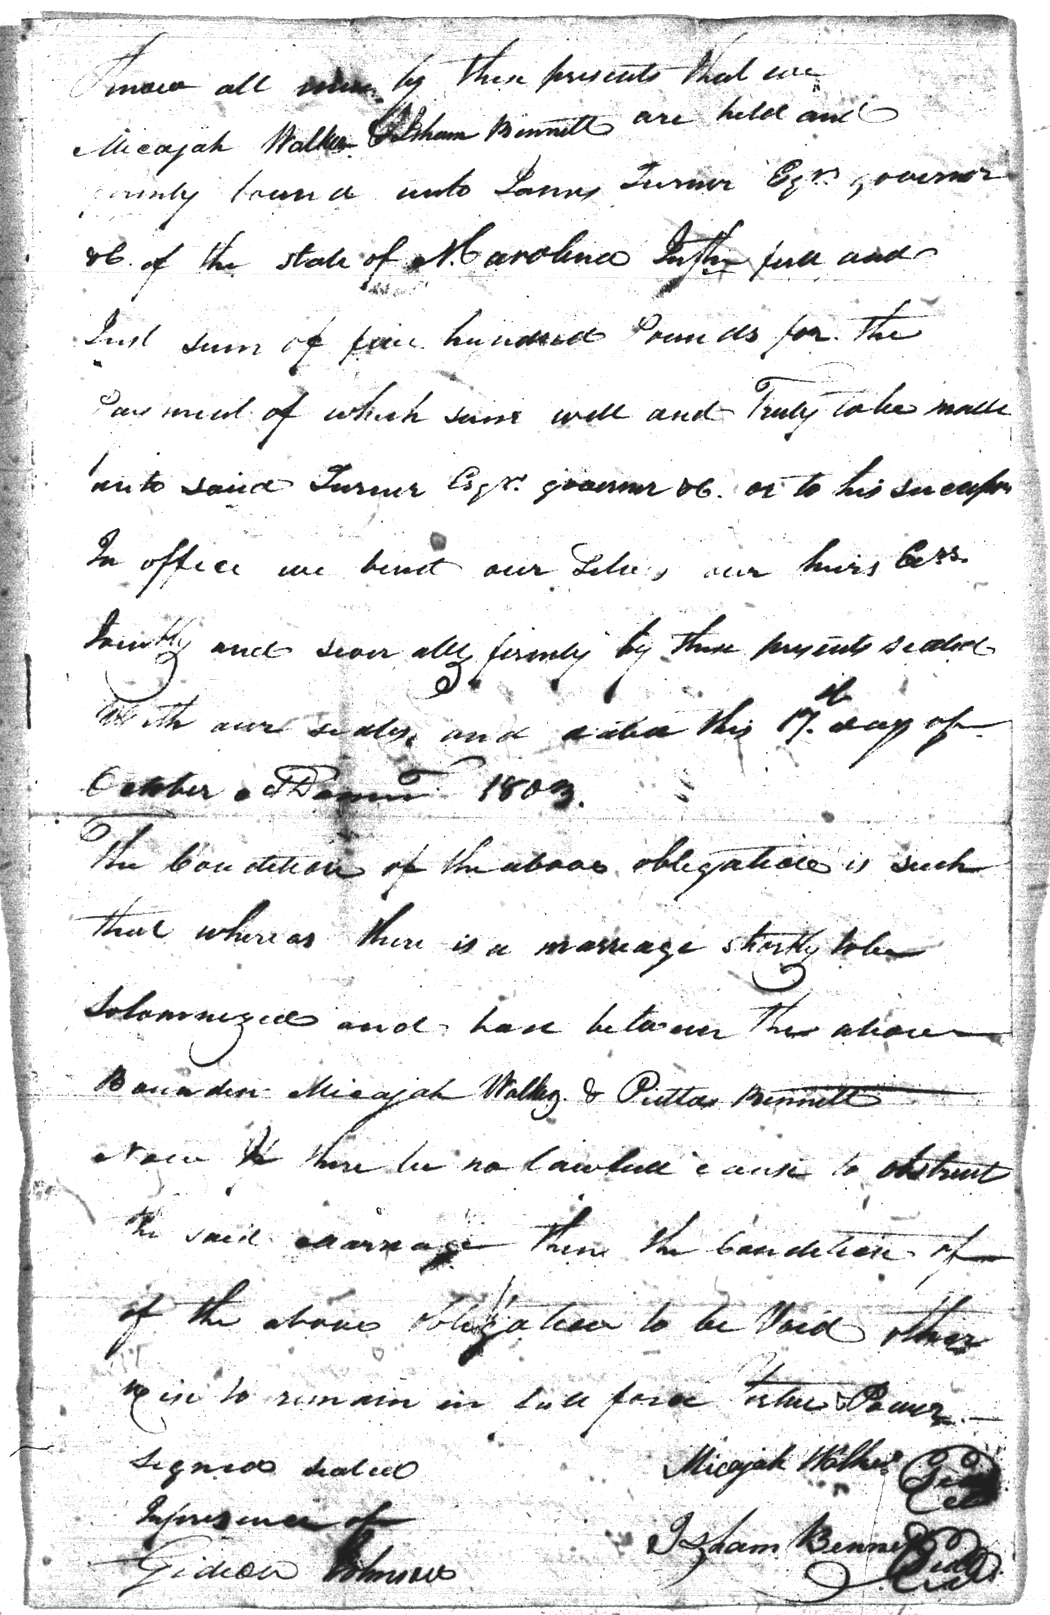 Know all men by these presents that we
Micajah Walker & Isham Bennett are held and
firmly bound unto James Turner Esqr. governor
&C. of the state of N. Carolina In the full and
Just sum of five hundred Pounds for the
Payment of which sum well and Truly to be made
unto said Turner Esqr. governor &C. or to his successors
In office we bind our Selves our heirs
Jointly and severally firmly by these presents sealed
With our seals, and dated this 17th day of
October 1803.
The Condition of the above obligation is such
that whereas there is a marreage shortly to be
Solomnized and had between the above
Bounden Micajah Walker & Bennett
Now If there be no lawfull cause to obstruct
the said marriage then the Condition of
of the above obligation to be Void other
wise to remain in full force Virtue & Power
Signed sealed
In presence of
Gideon Johnson
Micajah Walker Seal
Isham Bennett Seal